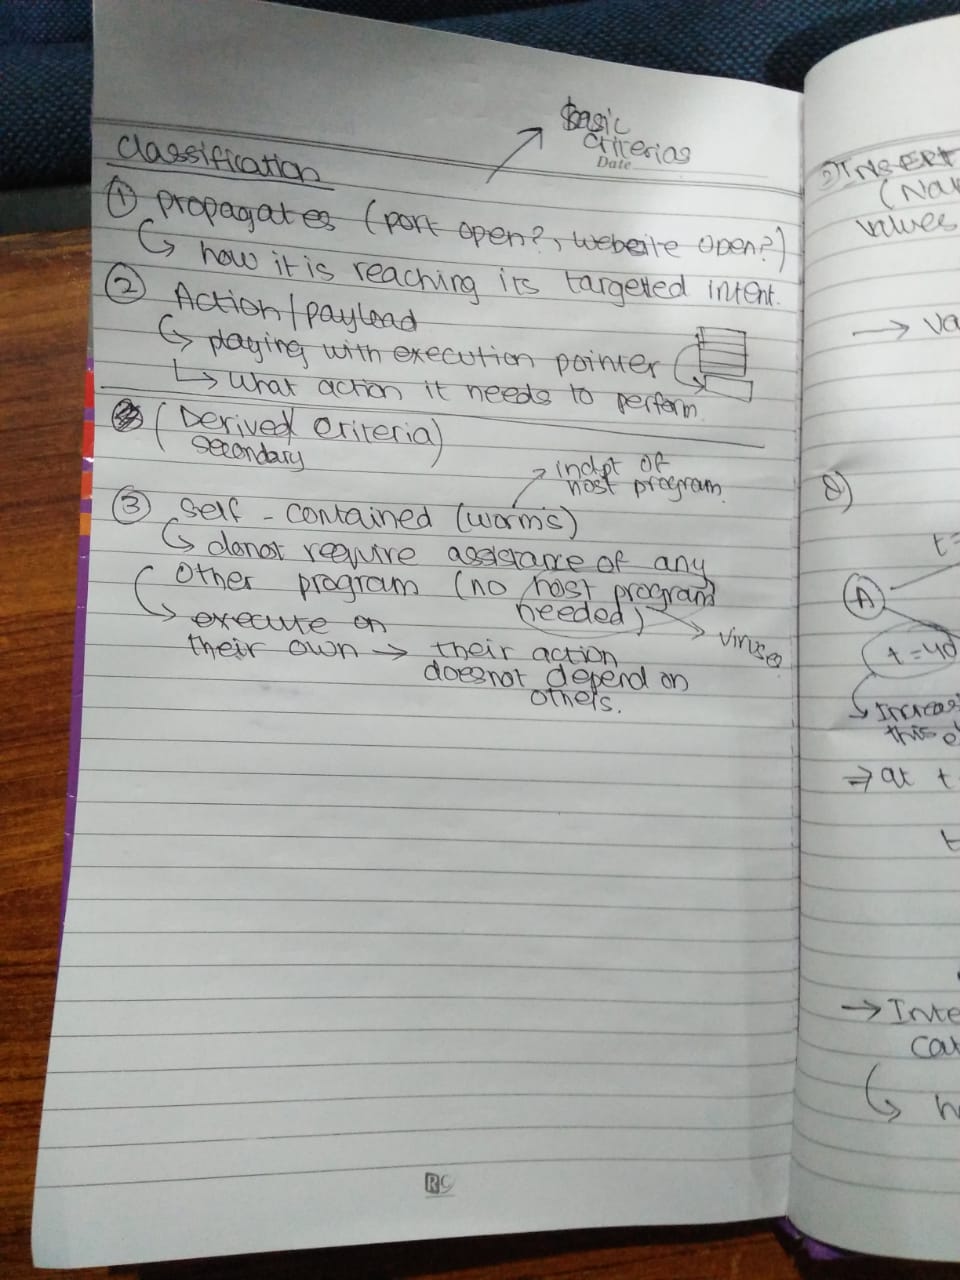 Basic
Criterias
Date
Classification
① Propagates (port open?, website open?)
↳ how it is reaching its targeted intent.
② Action/payload
↳ playing with execution pointer
↳ what action it needs to perform.
(Derived Criteria)
secondary
indpt of
host program.
③ Self-contained (worms)
↳ donot require assistance of any
other program (no host program
needed)
viruses
↳ execute on
their own → their action
doesnot depend on
others.
RC
INSERT
values
→ va
t=
A
t=40
↳ Increas
this e
⇒ at t
t
→ Inte
Cau
↳ h